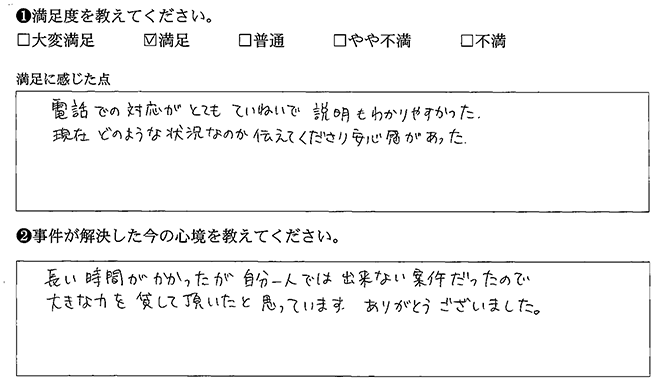 ❶満足度を教えてください。
□大変満足 ☑満足 □普通 □やや不満 □不満
満足に感じた点
電話での対応がとてもていねいで説明もわかりやすかった.
現在どのような状況なのか伝えてくださり安心感があった.
❷事件が解決した今の心境を教えてください。
長い時間がかかったが自分一人では出来ない案件だったので
大きな力を貸して頂いたと思っています. ありがとうございました。